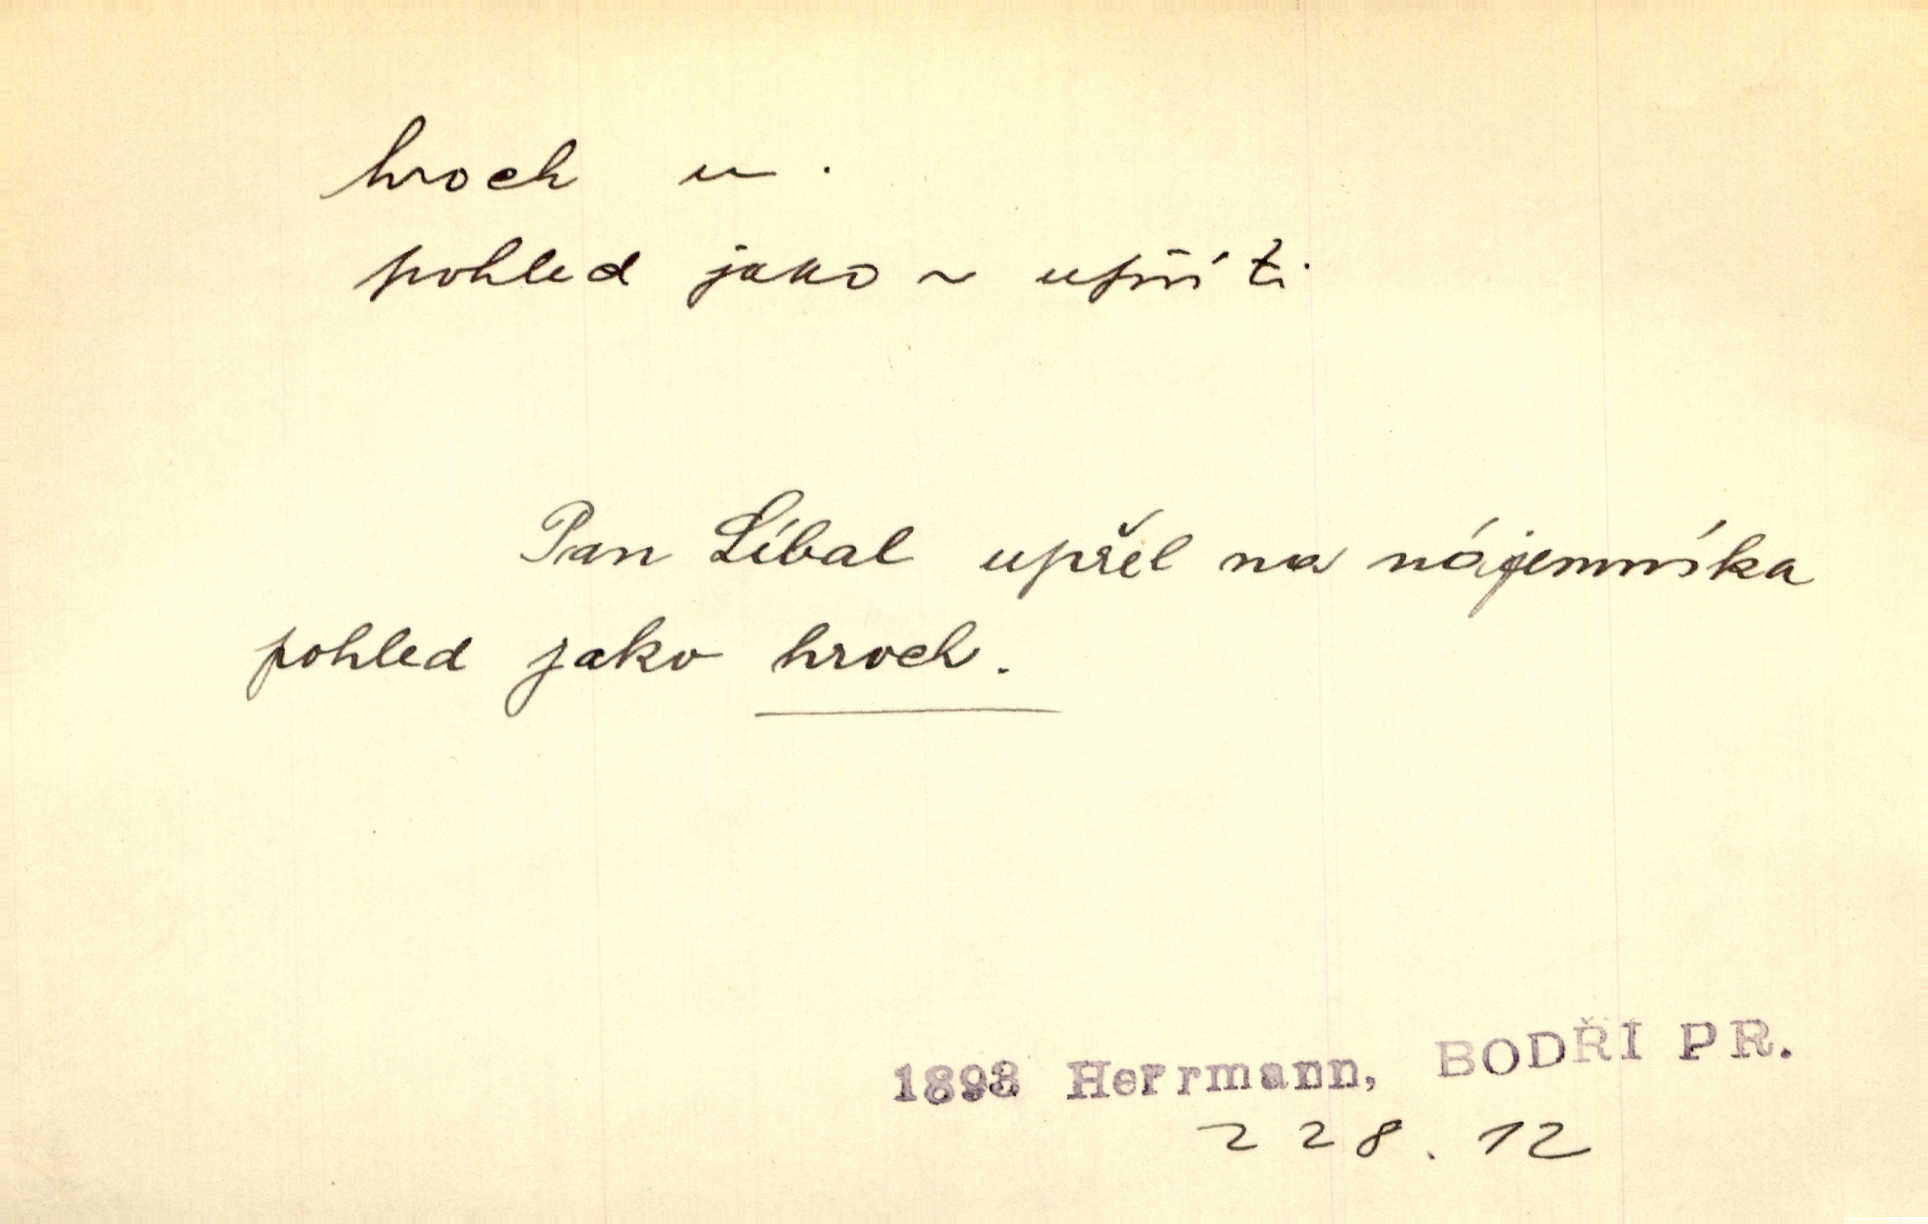 hroch m.
pohled jako ~ upříti
Pan Líbal upřel na nájemníka
pohled jako hroch.
1898 Herrmann, BODŘÍ PR.
228.12